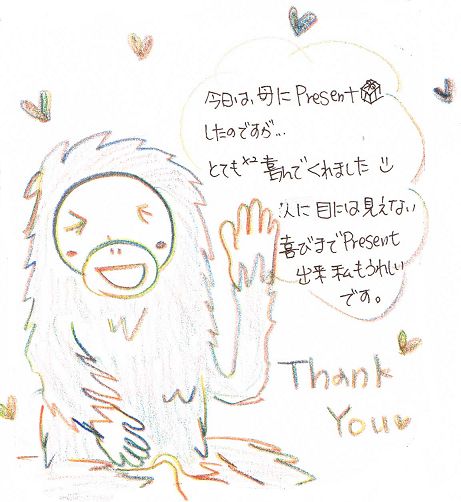 今日は、母にPresent
したのですが...
とても×2 喜んでくれました
人に目には見えない
喜びまでPresent
出来私もうれしい
です。
Thank
You